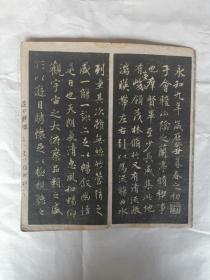 永和九年歲在癸丑暮春之初會
于會稽山陰之蘭亭脩稧事
也群賢畢至少長咸集此地
有崇領茂林脩竹又有清流激
湍暎帶左右引以為流觴曲水
列坐其次雖無絲竹管弦之
盛一觴一詠亦足以暢敘幽情
是日也天朗氣清惠風和暢仰
觀宇宙之大俯察品類之盛
所以遊目騁懷足以極視聽之